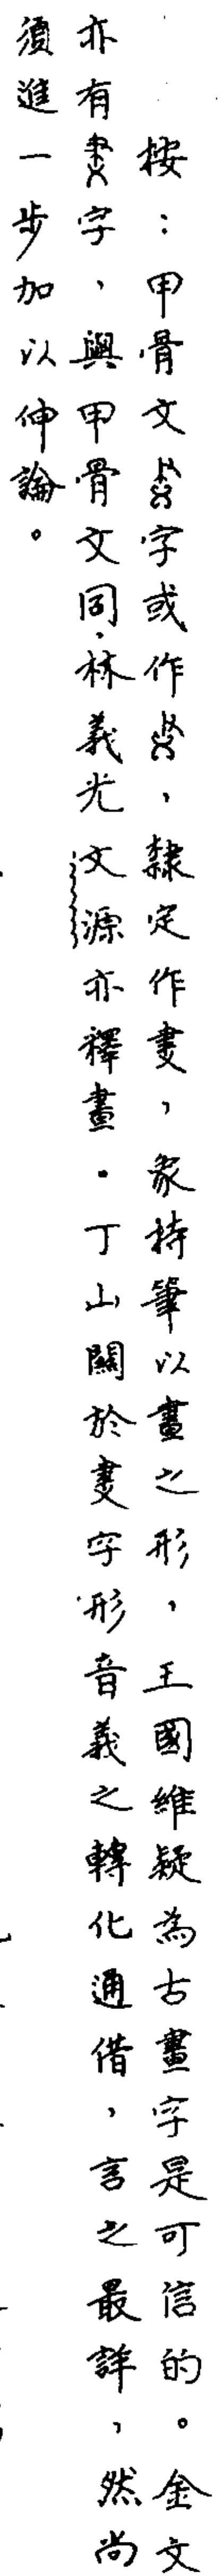 按：甲骨文字或作，隸定作㕞，象持筆以畫之形，王國維疑為古畫字是可信的。金文
亦有字，與甲骨文同，林義光文源亦釋畫。丁山關於字形音義之轉化通借，言之最詳，然尚
須進一步加以伸論。